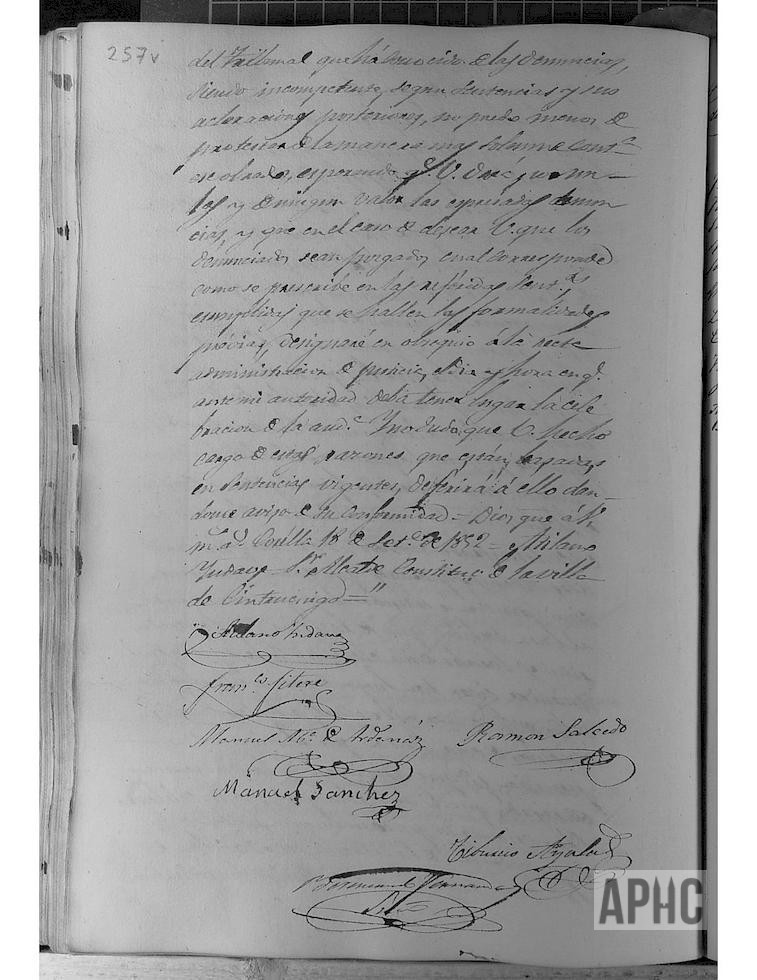 257v
del Tribunal que há conocido de las denuncias,
siendo incompetente, segun Sentencias y sus
aclaraciones posteriores, no puedo menos de
protestar de la manera mas solemne cont.ª
lo obrado, esperando q.e V. dará por nu-
las y de ningun valor las espresadas denun
cias, y que en el caso de desear V. que los
denunciados sean juzgados cual corresponde
como se prescribe en las referidas Sent.as
cumplidas que se hallen las formalidades
prévias, designaré en obsequio á la recta
administracion de justicia, el dia y hora en q.e
ante mi autoridad deba tener lugar la cele
bracion de la aud.ª No dudo, que V. hecho
cargo de estas razones que están basadas
en Sentencias vigentes, deferirá á ello dan-
dome aviso de su conformidad = Dios gue á V.
m.s a.s Corella 18 de Set.e de 1852 =
= S.r Alcalde Constituc.l de la villa
de Cintruenigo = "
Fran.co
Manuel M.ª de Ardanáz
Ramon Salcedo
Manuel Sanchez
Tiburcio Ayala
APHC